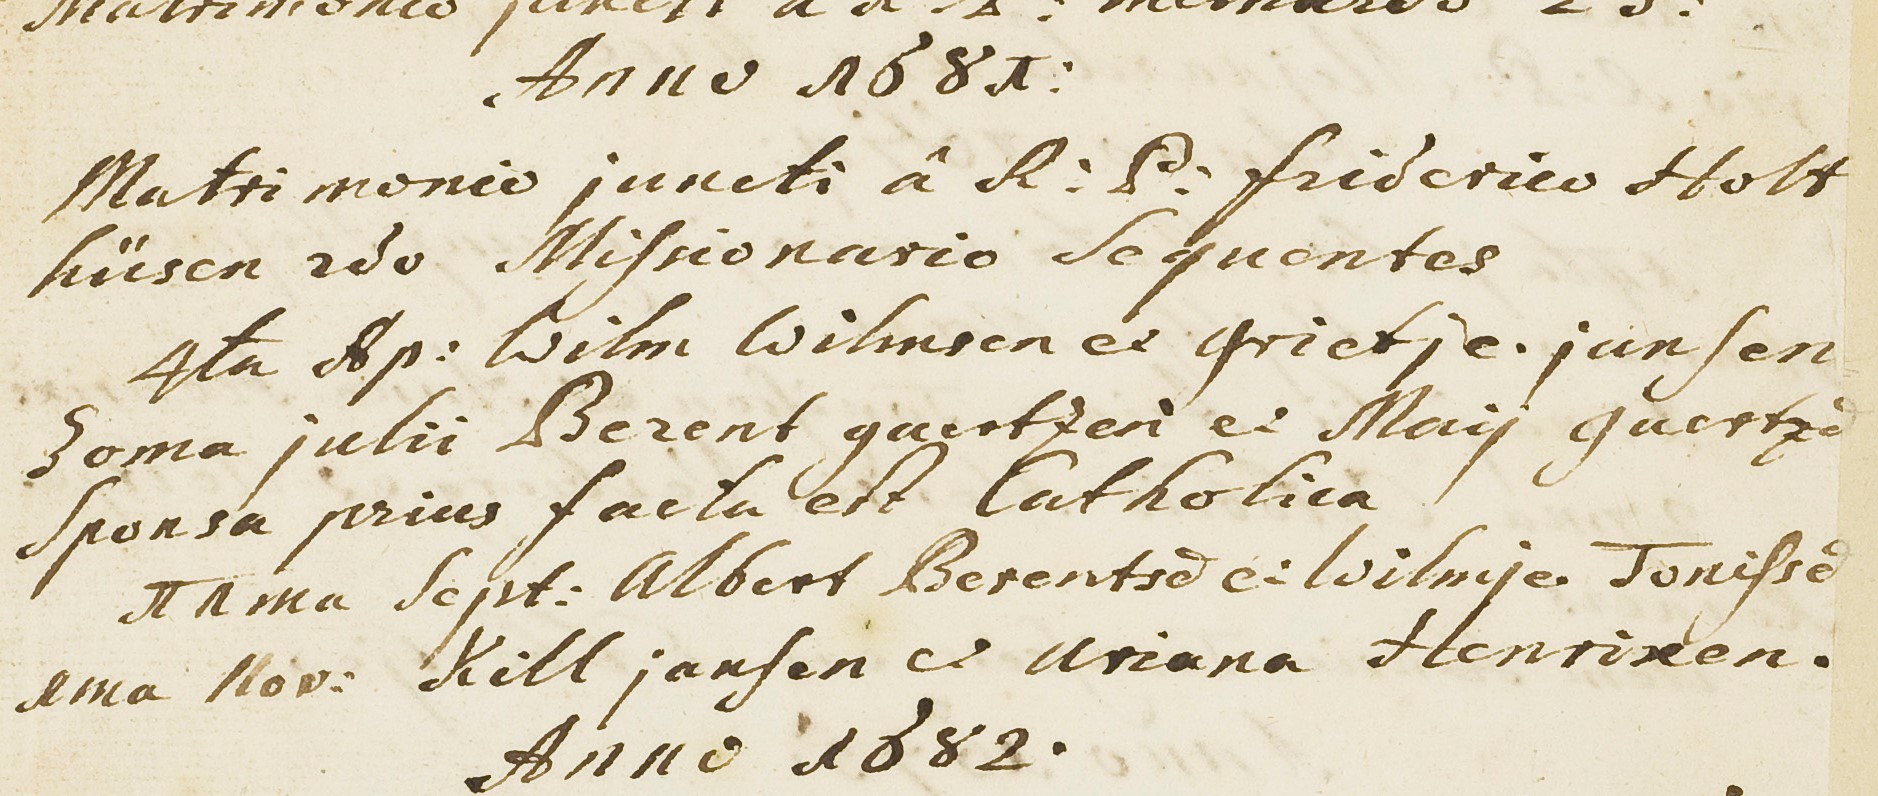 Matrimonio juncti a R: P:
Anno 1681:
Matrimonio juncti â R: P: friderico Holt
hüsen 2do Missionario Sequentes
4ta Ap: Wilm Wilmsen et grietje jansen
30ma julii Berent guertzen et Maij guertzē
Sponsa prius facta est Catholica
11ma Sept: Albert Berentsē et Wilmje Tonissē
1ma Nov: Kill jansen et Ariana Henrixen.
Anno 1682.